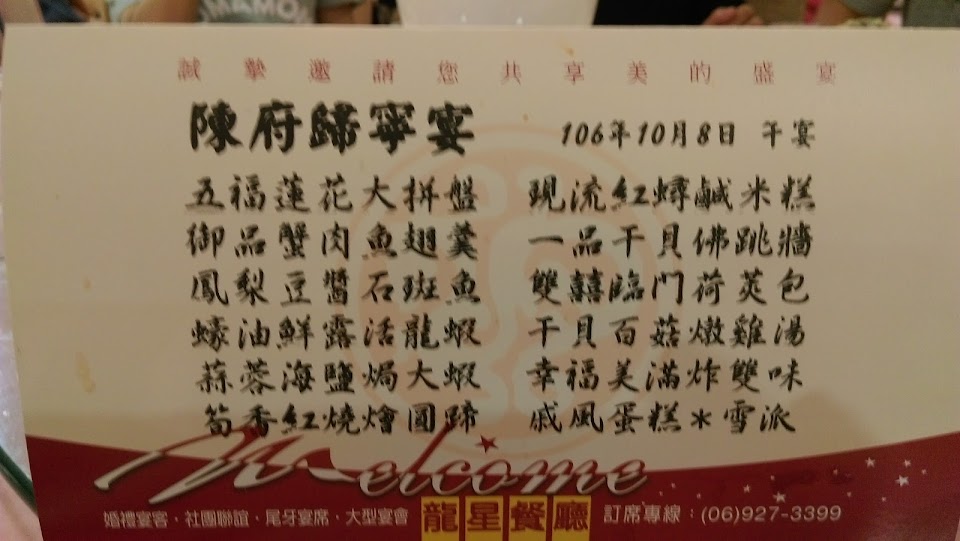 誠摯邀請您共享美的盛宴
陳府歸寧宴
106年10月8日 午宴
五福蓮花大拼盤
御品蟹肉魚翅羹
鳳梨豆醬石斑魚
蠔油鮮露活龍蝦
蒜蓉海鹽焗大蝦
筍香紅燒燴圓蹄
現流紅蟳鹹米糕
一品干貝佛跳牆
雙囍臨門荷芙包
干貝百菇燉雞湯
幸福美滿炸雙味
戚風蛋糕*雪派
Welcome
婚禮宴客·社團聯誼·尾牙宴席·大型宴會
龍星餐廳
訂席專線:(06)927-3399